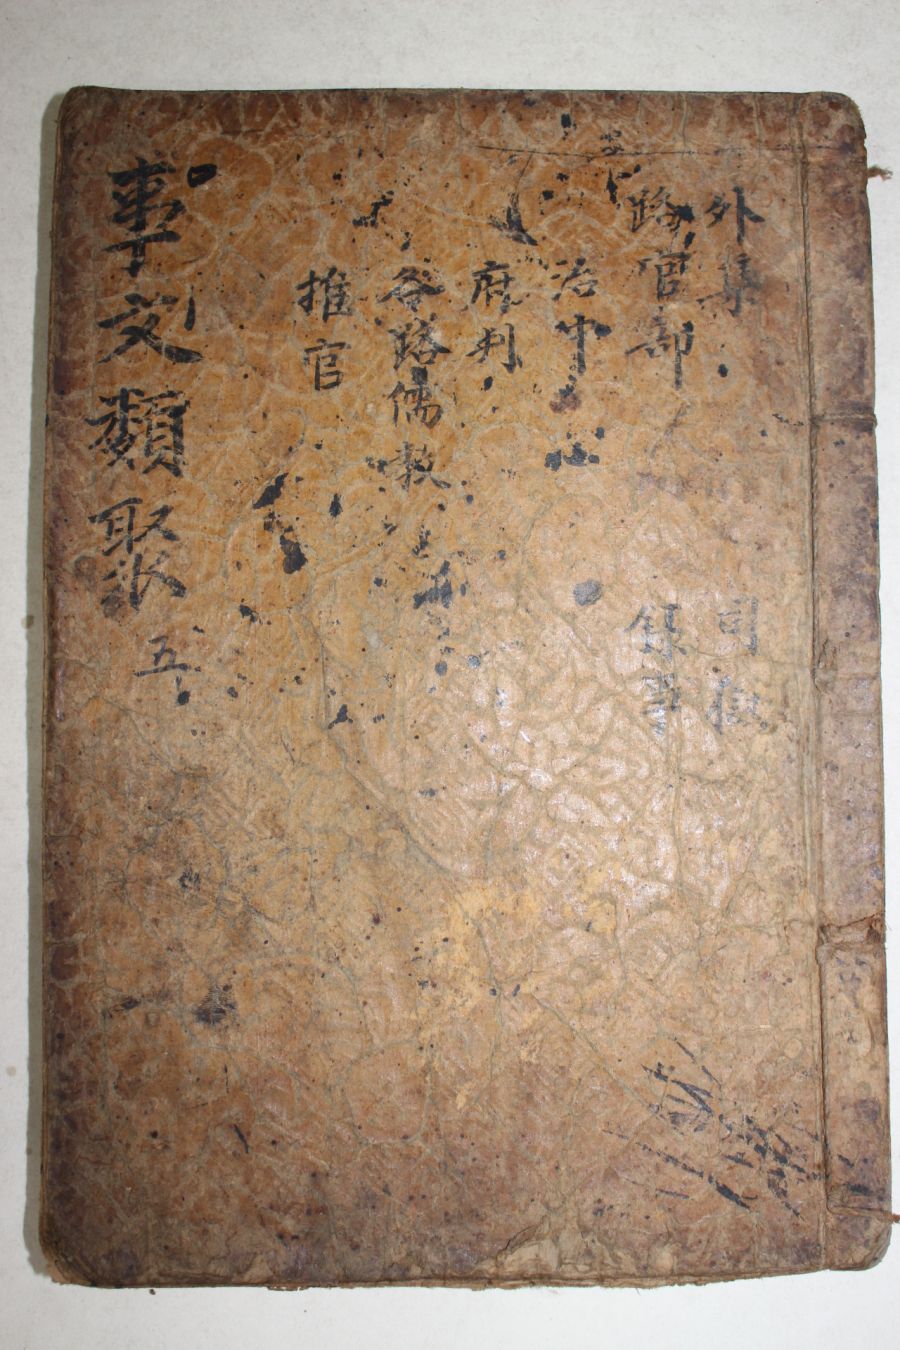 外集
路官部
治中
府判
各路儒教
推官
司獄
錄事
事文類聚 五